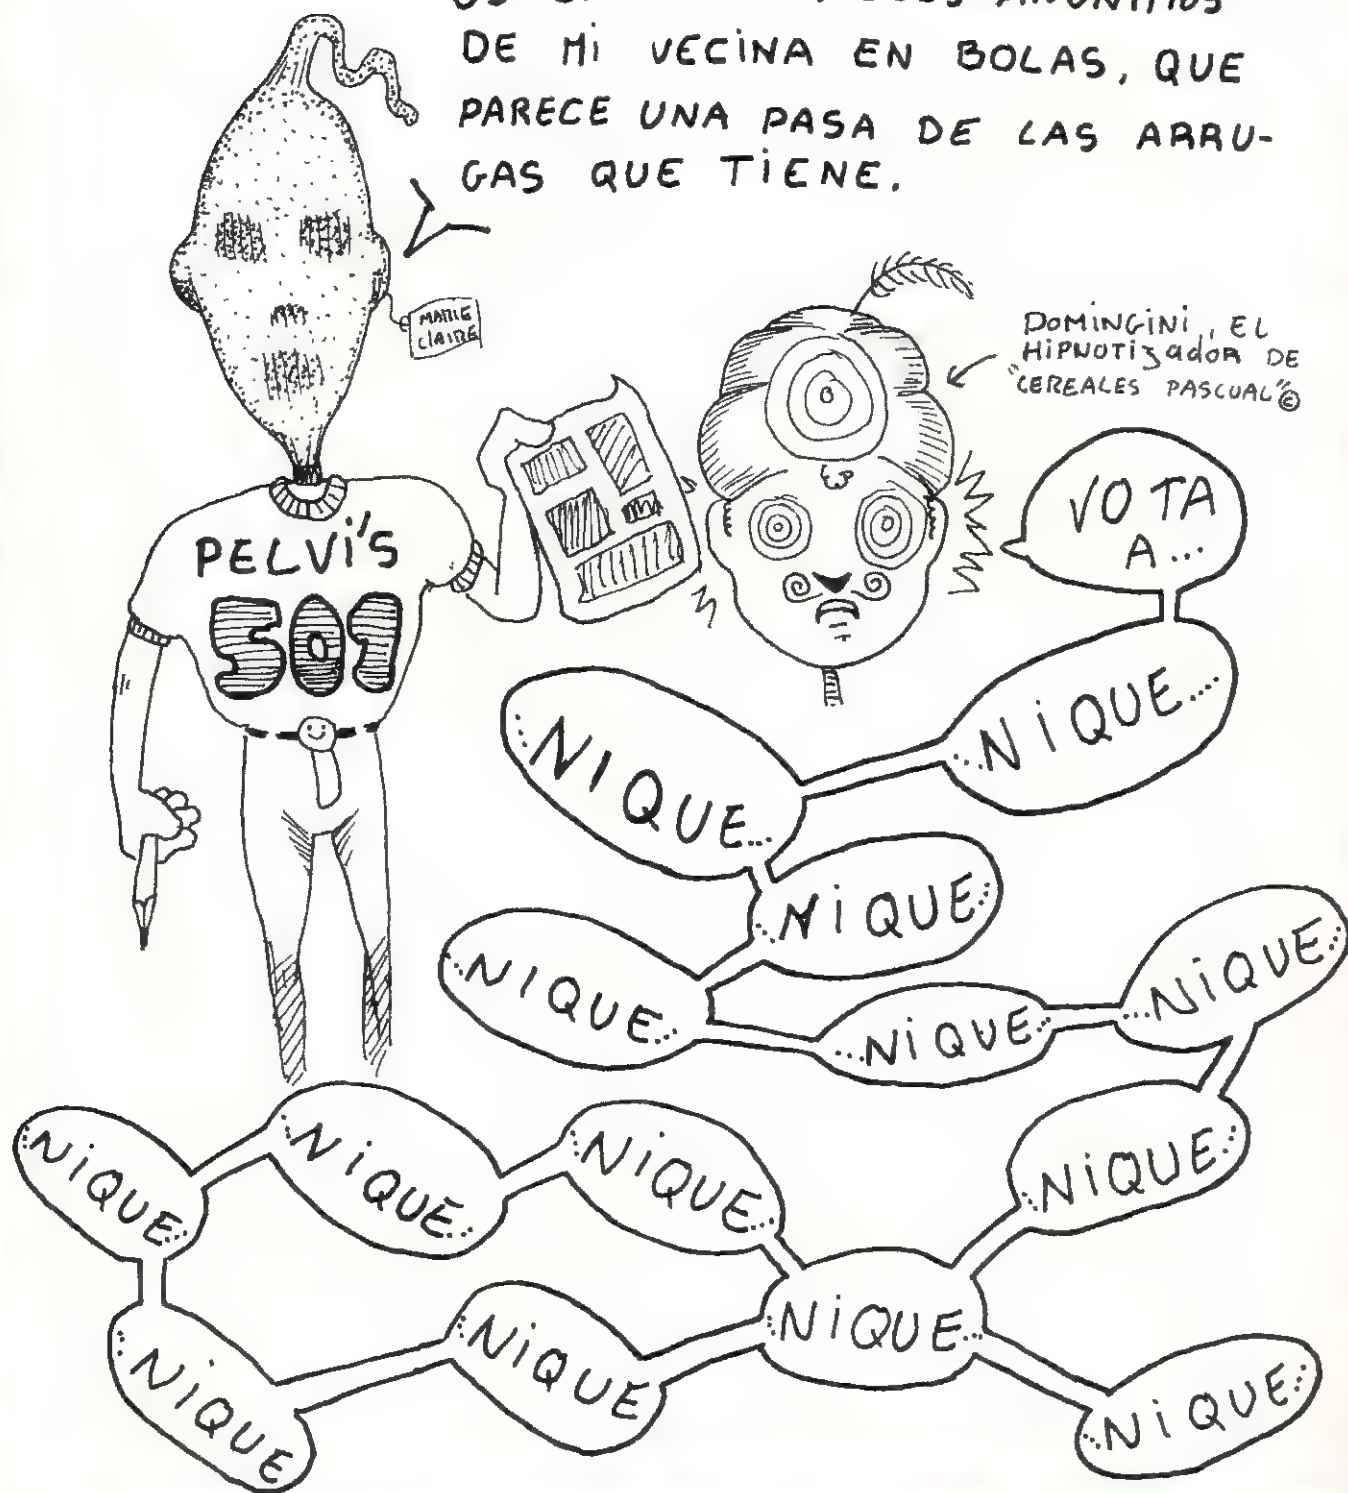 DE Mi VECiNA EN BOLAS, QUE
PARECE UNA PASA DE LAS ARRU-
GAS QUE TiENE.
MARIE
CLAIRE
DOMiNGiNi, EL
HiPNOTizadoR DE
"CEREALES PASCUAL"©
PELVi'S
501
VOTA
A...
...NiQUE...
...NIQUE...
...NiQUE...
...NIQUE...
...NiQUE...
...NiQUE...
...NiQUE...
...NiQUE...
...NiQUE...
...NiQUE...
...NiQUE...
...NiQUE
...NiQUE
...NiQUE...